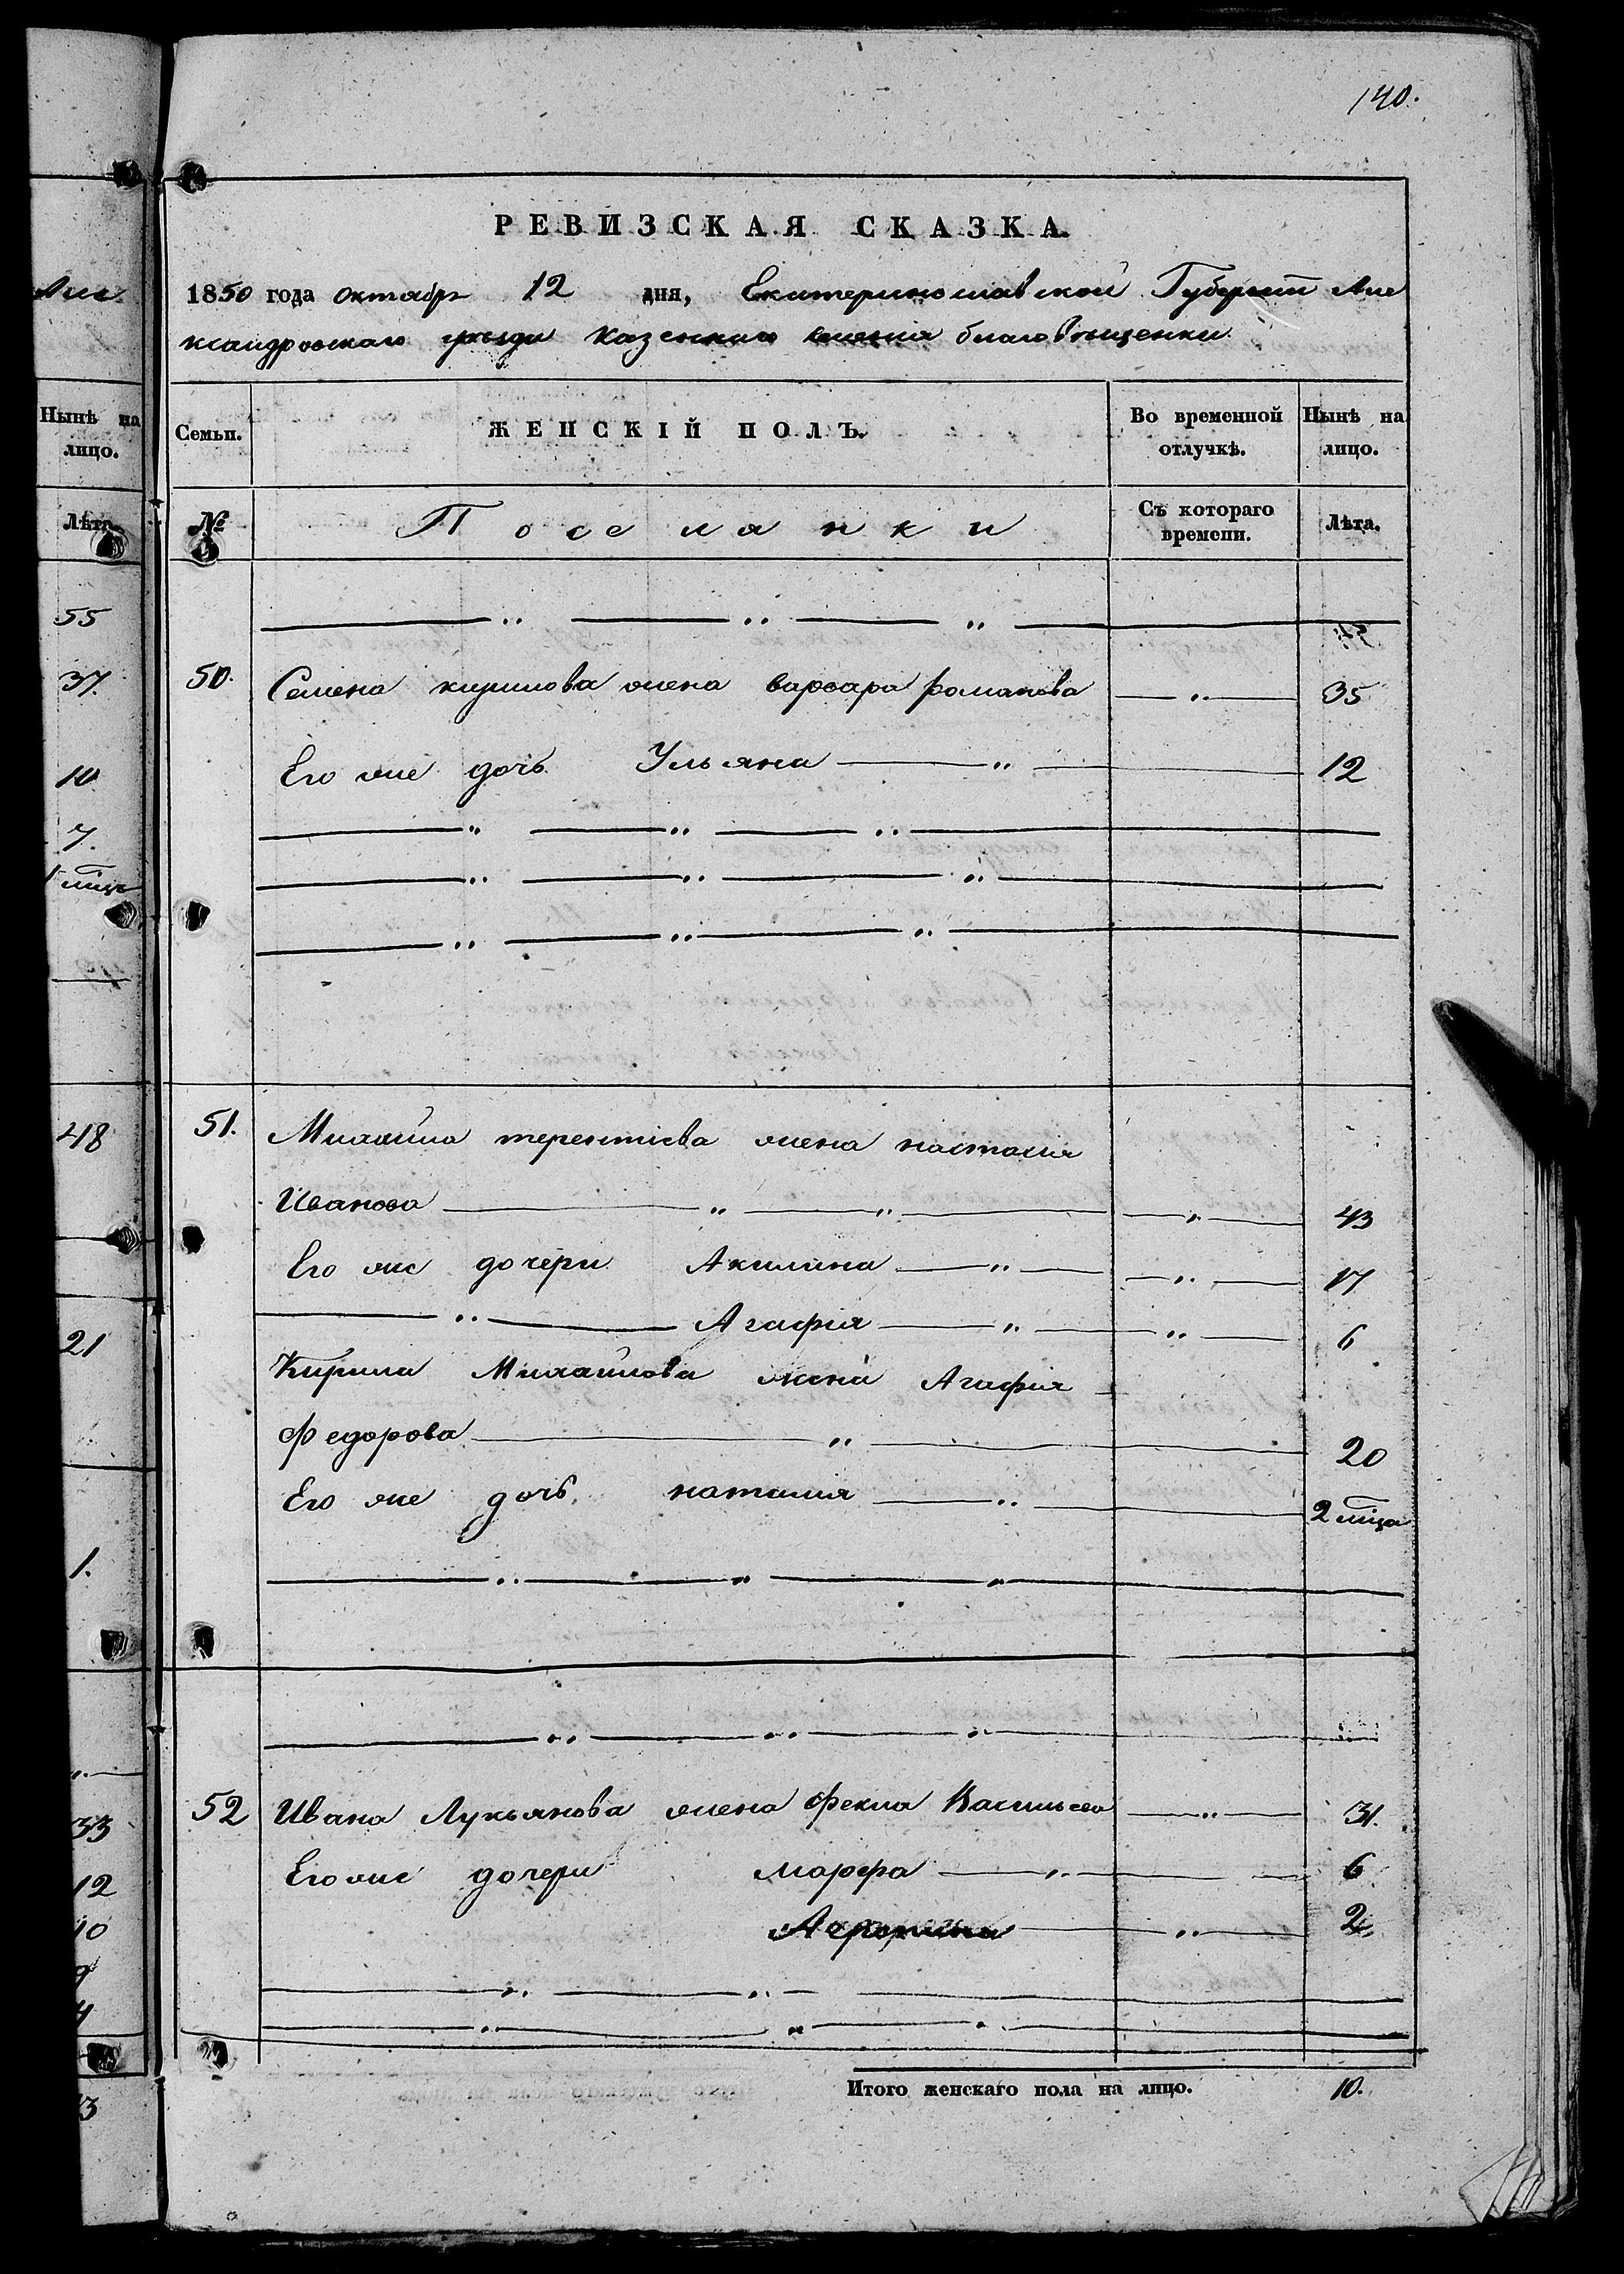 140.
РЕВИЗСКАЯ СКАЗКА.
1850 года октябр 12 дня, Екатеринославской Губернiи Але
ксандровскаго уѣзда Казеннаго селенія благовѣщенки
Семьи. ЖЕНСКІЙ ПОЛЪ. Во временной отлучкѣ. Нынѣ на лицо.
№ Поселянки Съ котораго времени. Лѣта.
50. Семена кирилова жена варвара романова 35
Его же дочь Ульяна 12
51. Михайла терентіева жена настасия
Иванова 43
Его же дочери Акилина 17
Агафія 6
Кирила Михайлова жена Агафія
Федорова 20
Его же дочь наталия 2 мца
52 Ивана Лукьянова жена Фекла Васильева 31.
Его же дочери Марфа 6
2
Итого женскаго пола на лицо. 10.
Але
Нынѣ на лицо.
Лѣта
55
37
10
7.
1 мцъ
48
21
1.
33
12
10